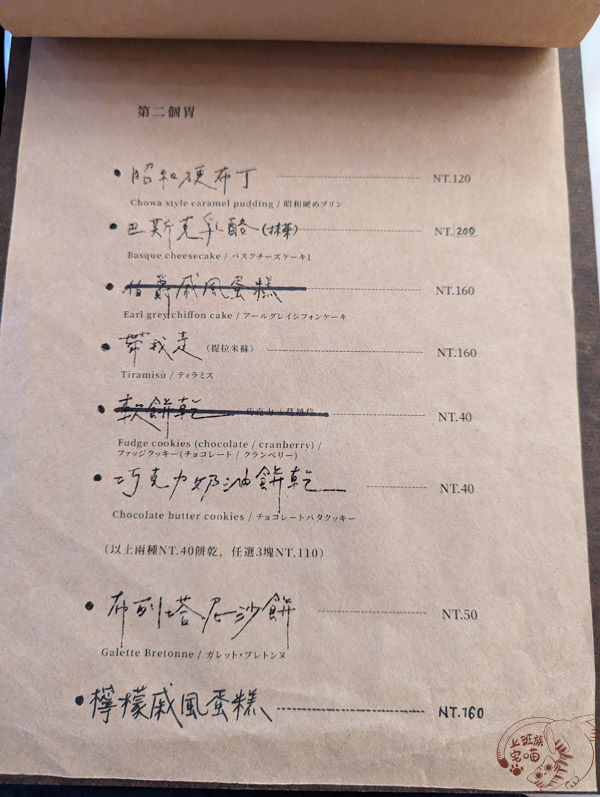 第二個胃
昭和硬布丁 NT.120
Chowa style caramel pudding / 昭和硬めプリン
巴斯克乳酪(抹茶) NT.200
Basque cheesecake / バスクチーズケーキ1
伯爵戚風蛋糕 NT.160
Earl grey chiffon cake / アールグレイシフォンケーキ
帶我走(提拉米蘇) NT.160
Tiramisù / ティラミス
軟餅乾 NT.40
Fudge cookies (chocolate / cranberry) /
ファッジクッキー(チョコレート / クランベリー)
巧克力奶油餅乾 NT.40
Chocolate butter cookies / チョコレートバタクッキー
(以上兩種NT.40餅乾, 任選3塊NT.110)
布列塔尼沙餅 NT.50
Galette Bretonne / ガレット・ブレトンヌ
檸檬戚風蛋糕 NT.160
上班族
宅喵